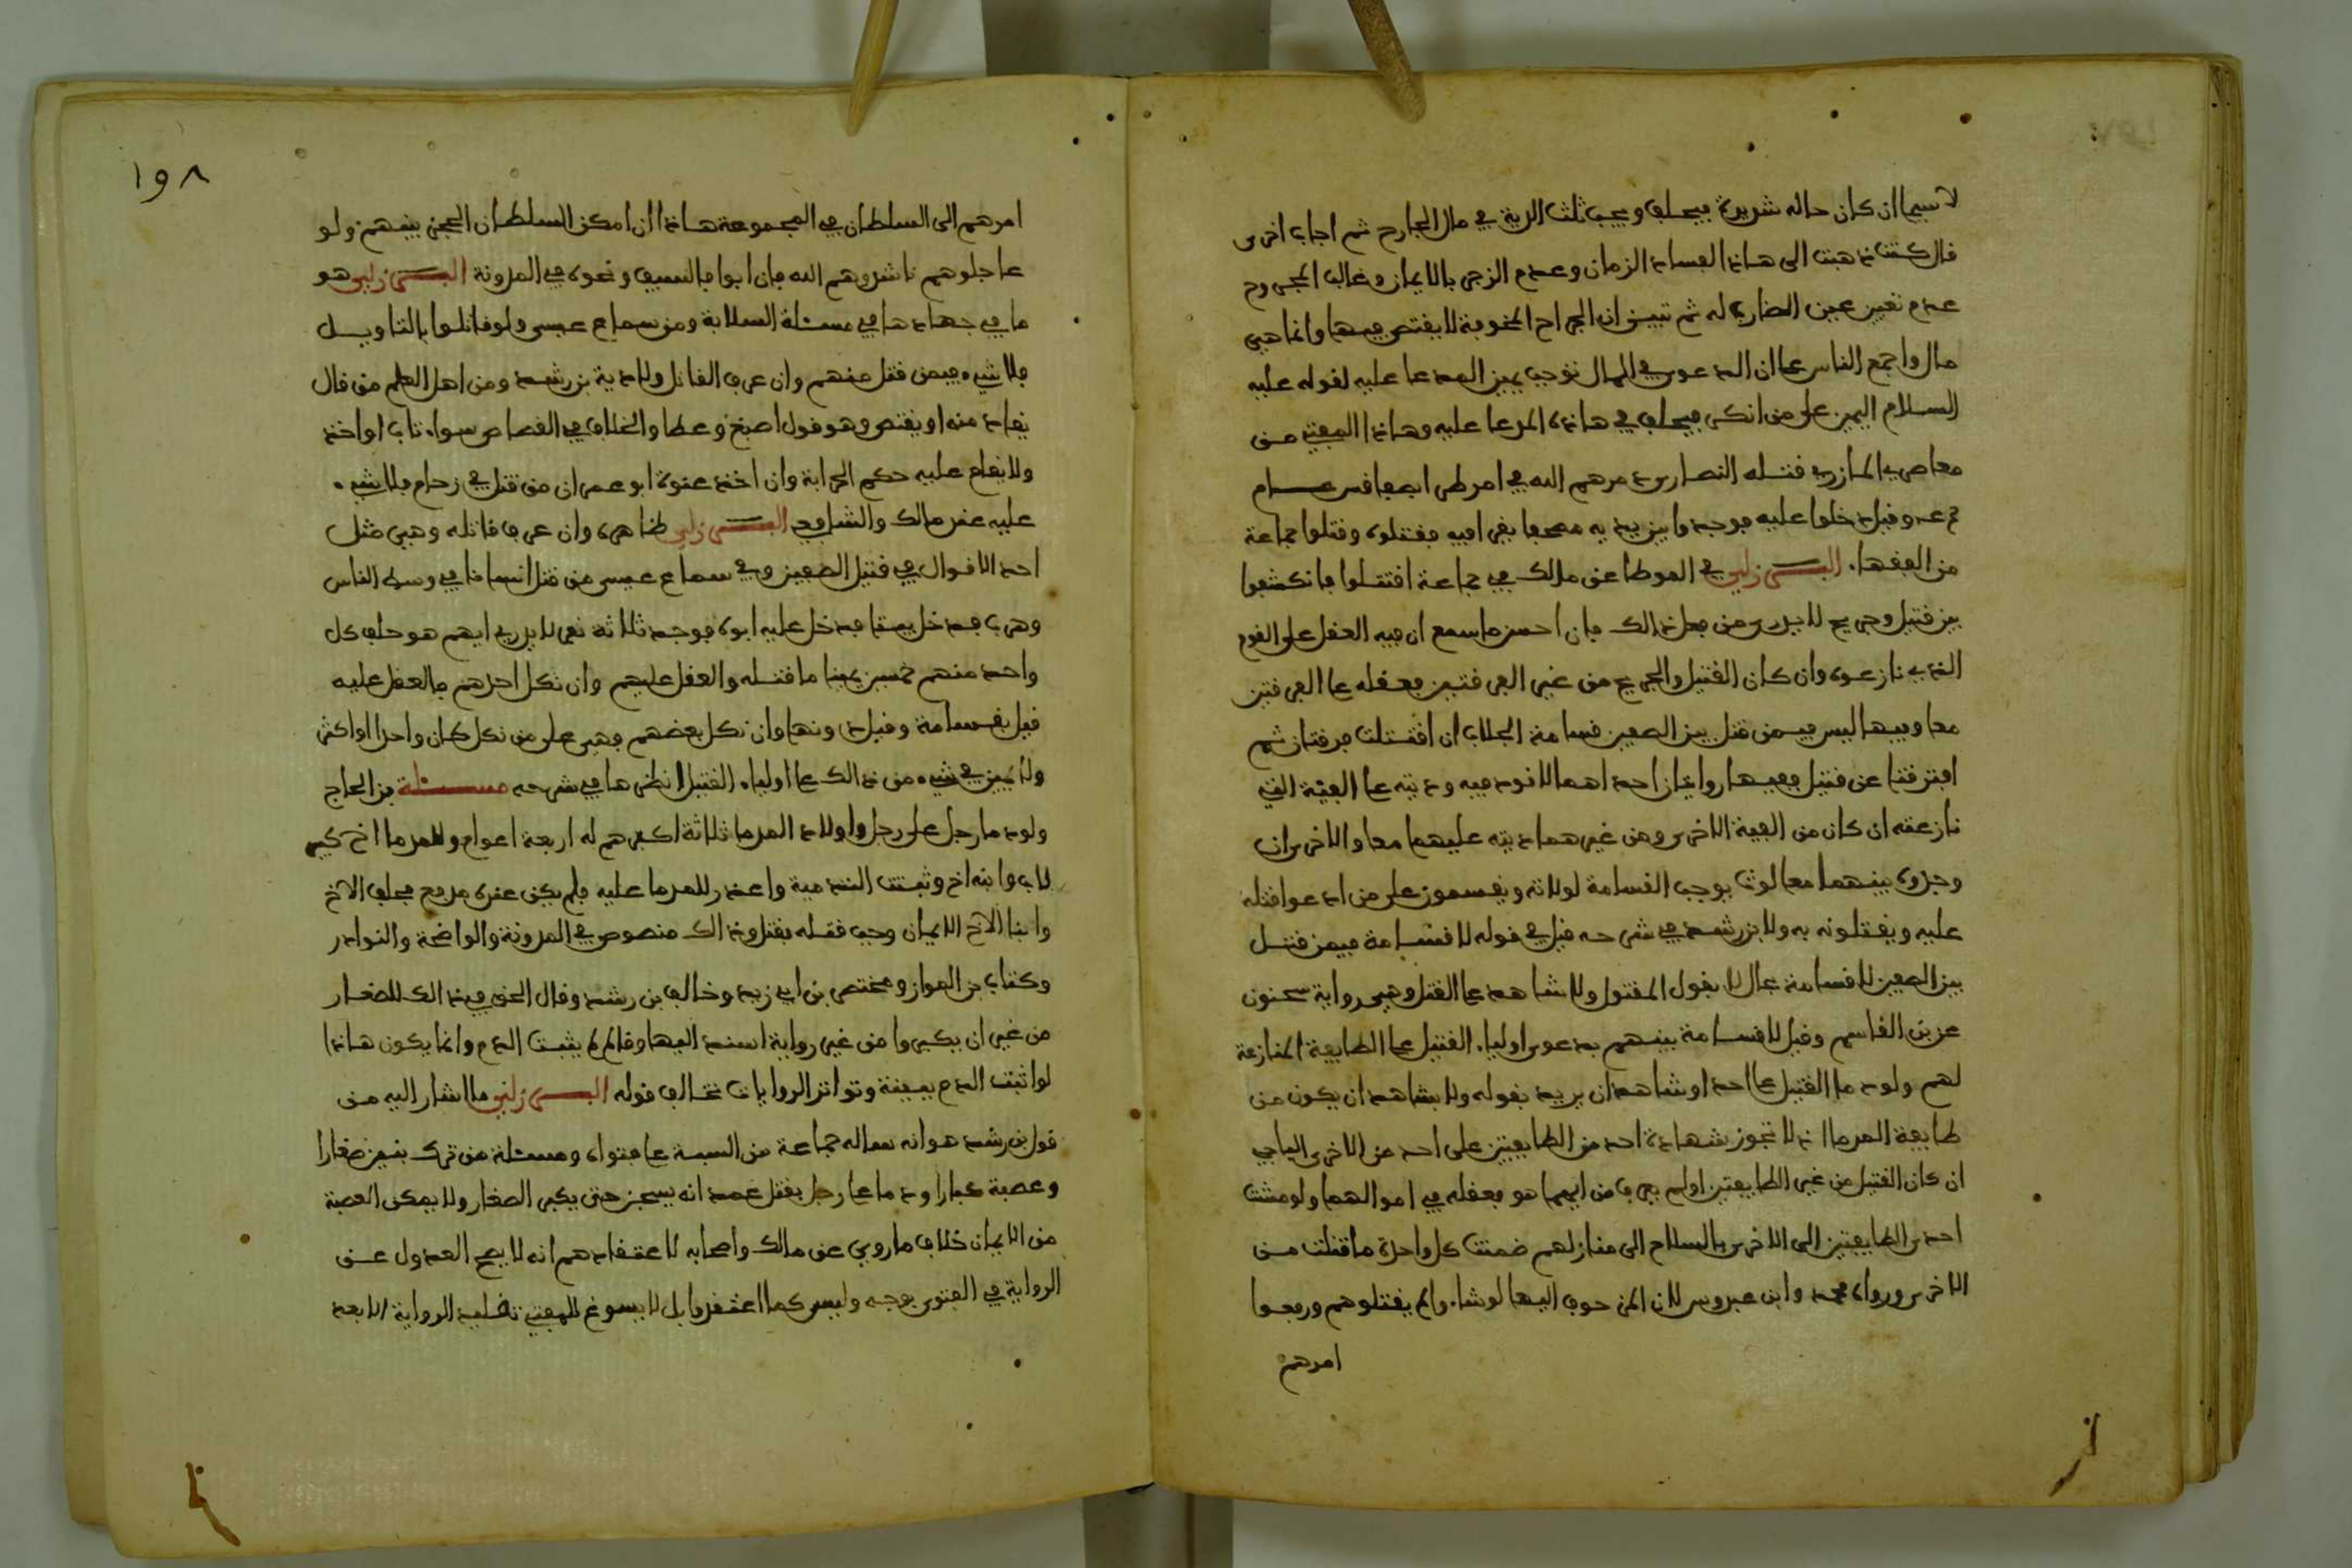 لا سيما ان كان حاله شريرة فيحلف ويجب ثلث الدية في مال الجارح ثم اجاب اخرى
قال كنت ذهبت الى هاذا لفساد الزمان وعدم الزجر بالايمان وغالب المجروح
عدم تعيين عين الضارب له ثم تبين ان الجراح المخوفة لا يقتص فيها وانما هي
مال واجمع الناس على ان الدعوى في المال توجب يمين المدعا عليه لقوله عليه
السلام اليمين على من انكر فيحلف في هاذه المدعا عليه وهاذا المفتي من
معاصر المازري قتله النصارى دمرهم الله في امر طرا بصفاقس عام
وقيل دخلوا عليه فوجدوا بين يديه مصحفا يقرا فيه فقتلوه وقتلوا جماعة
من الفقهاء البرزلي في الموطا عن مالك في جماعة اقتتلوا فانكشفوا
بين قتيل وجريح لا يدرى من فعل ذالك فان احسن ما سمع ان فيه العقل على القوم
الذي نازعوه وان كان القتيل والجريح من غير الفرقتين فعقله على الفرقتين
معا وفيها ليس فيمن قتل بين الصفين قسامة الجلاب ان اقتتلت فرقتان ثم
افترقتا عن قتيل ففيها روايتان احداهما لا قود فيه وديته على الفئة التي
نازعته ان كان من الفئة الاخرى ومن غيرهما ديته عليهما معا والاخرى ان
وجوده بينهما معا لوث يوجب القسامة لولاته ويقسمون على من ادعوا قتله
عليه ويقتلونه به ولابن رشد في شرحه قيل في قوله لا قسامة فيمن قتل
بين الصفين لا قسامة بحال لا بقول المقتول ولا بشاهد على القتل وهي رواية سحنون
عن بن القاسم وقيل لا قسامة بينهم بدعوى اولياء القتيل على الطايفة المنازعة
لهم ولو دما القتيل على احد او شاهدان يريد بقوله ولا بشاهد ان يكون من
طايفة المدما اذ لا تجوز شهادة احد من الطايفتين على احد من الاخرى الباجي
ان كان القتيل من غير الطايفتين او لم يعرف من ايهما هو فعقله في اموالهما ولو مشت
احدى الطايفتين الى الاخرى بالسلاح الى منازلهم ضمنت كل واحدة ما قتلت من
الاخرى ورواه محمد وابن عبدوس لان المزحوف اليها لو شاء والم يقتلوهم ورفعوا
امرهم
١٩٨
امرهم الى السلطان في المجموعة هاذا ان امكن السلطان الحجز بينهم ولو
عاجلوهم ناشدوهم الله فان ابوا فالسيف ونحوه في المدونة البرزلي هو
ما في جهادها في مسئلة السلابة ومن سماع عيسى ولو قاتلوا بالتاويل
فلا شيء فيمن قتل منهم وان عرف القاتل ولا دية بن رشد ومن اهل العلم من قال
يقاد منه او يقتص وهو قول اصبغ وعطا والخلاف في القصاص سواء تاب او اخذ
ولا يقام عليه حكم الحرابة وان اخذ عنوة ابو عمران من قتل في زحام فلا شيء
عليه عند مالك والشافعي البرزلي ظاهره وان عرف قاتله وهي مثل
احد الاقوال في قتيل الصفين وفي سماع عيسى من قتل انسانا في وسط الناس
وهرب فدخل بيتا فدخل عليه ابوه فوجد ثلاثة نفر لا يدرى ايهم هو حلف كل
واحد منهم خمسين يمينا ما قتله والعقل عليهم وان نكل احدهم فالعقل عليه
قيل بقسامة وقيل دونها وان نكل بعضهم فهي على من نكل كان واحدا او اكثر
ولا يمين في شيء من ذالك على اولياء القتيل انظرها في شرحه مسئلة بن الحاج
ولو دما رجل على رجل واولاد المدما ثلاثة اكبرهم له اربعة اعوام وللمدما اخ كبير
لاب وابنه اخ وثبتت التدمية واعذر للمدما عليه فلم يكن عنده مدفع فحلف الاخ
وابنا الاخ الايمان وجب قتله فقتل وذالك منصوص في المدونة والواضحة والنوادر
وكتاب بن المواز ومختصر بن ابي زيد وخالف بن رشد وقال الحق في ذالك للصغار
من غير ان يكبروا من غير رواية استند اليها وقال لم يثبت الدم وانما يكون هاذا
لو اثبت الدم ببينة وتواتر الروايات تخالف قوله البرزلي ما اشار اليه من
قول بن رشد هو انه ساله جماعة من السبتة على فتواه ومسئلة من ترك بنين صغارا
وعصبة كبارا ودما على رجل بقتل عمد انه يسجن حتى يكبر الصغار ولا يمكن العصبة
من الايمان خلاف ما روي عن مالك واصحابه لاعتقادهم انه لا يصح العدول عن
الرواية في الفتوى بوجه وليس كما اعتقدوا بل لا يسوغ للمفتي تقليد الرواية الا بعد